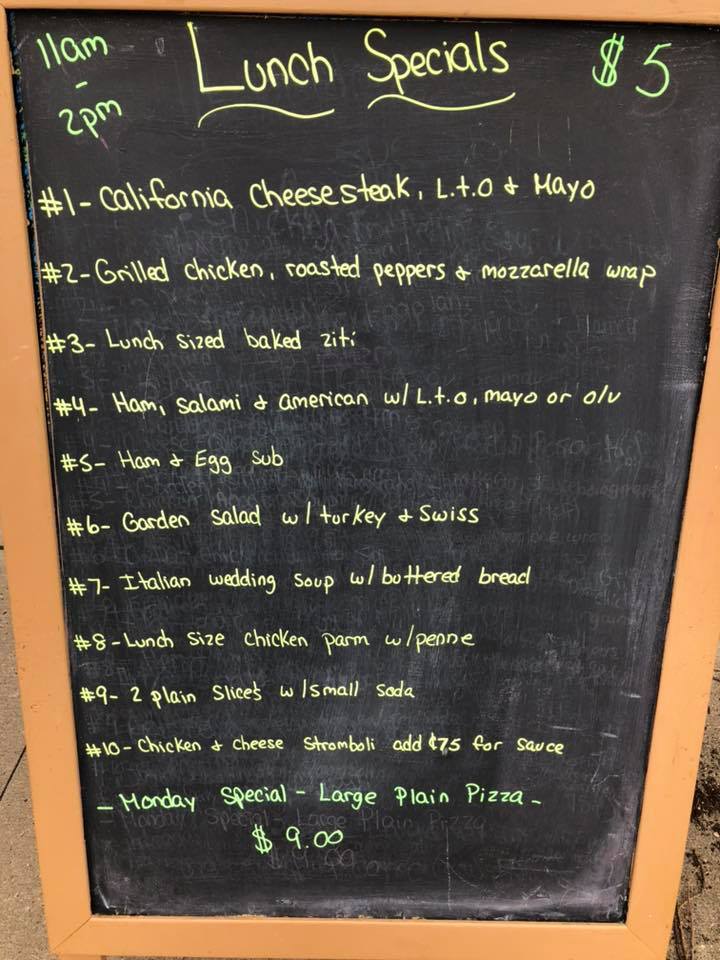 11am
-
2pm
Lunch Specials
$5
#1- California Cheesesteak, L.t.O & Mayo
#2- Grilled Chicken, roasted peppers & mozzarella wrap
#3- Lunch Sized baked ziti
#4- Ham, Salami & american w/ L.t.o, mayo or o/v
#5- Ham & Egg Sub
#6- Garden Salad w/ turkey & Swiss
#7- Italian wedding Soup w/ buttered bread
#8- Lunch Size chicken parm w/penne
#9- 2 plain Slices w/small Soda
#10- Chicken & cheese Stromboli add ¢75 for sauce
- Monday Special - Large Plain Pizza -
$9.00